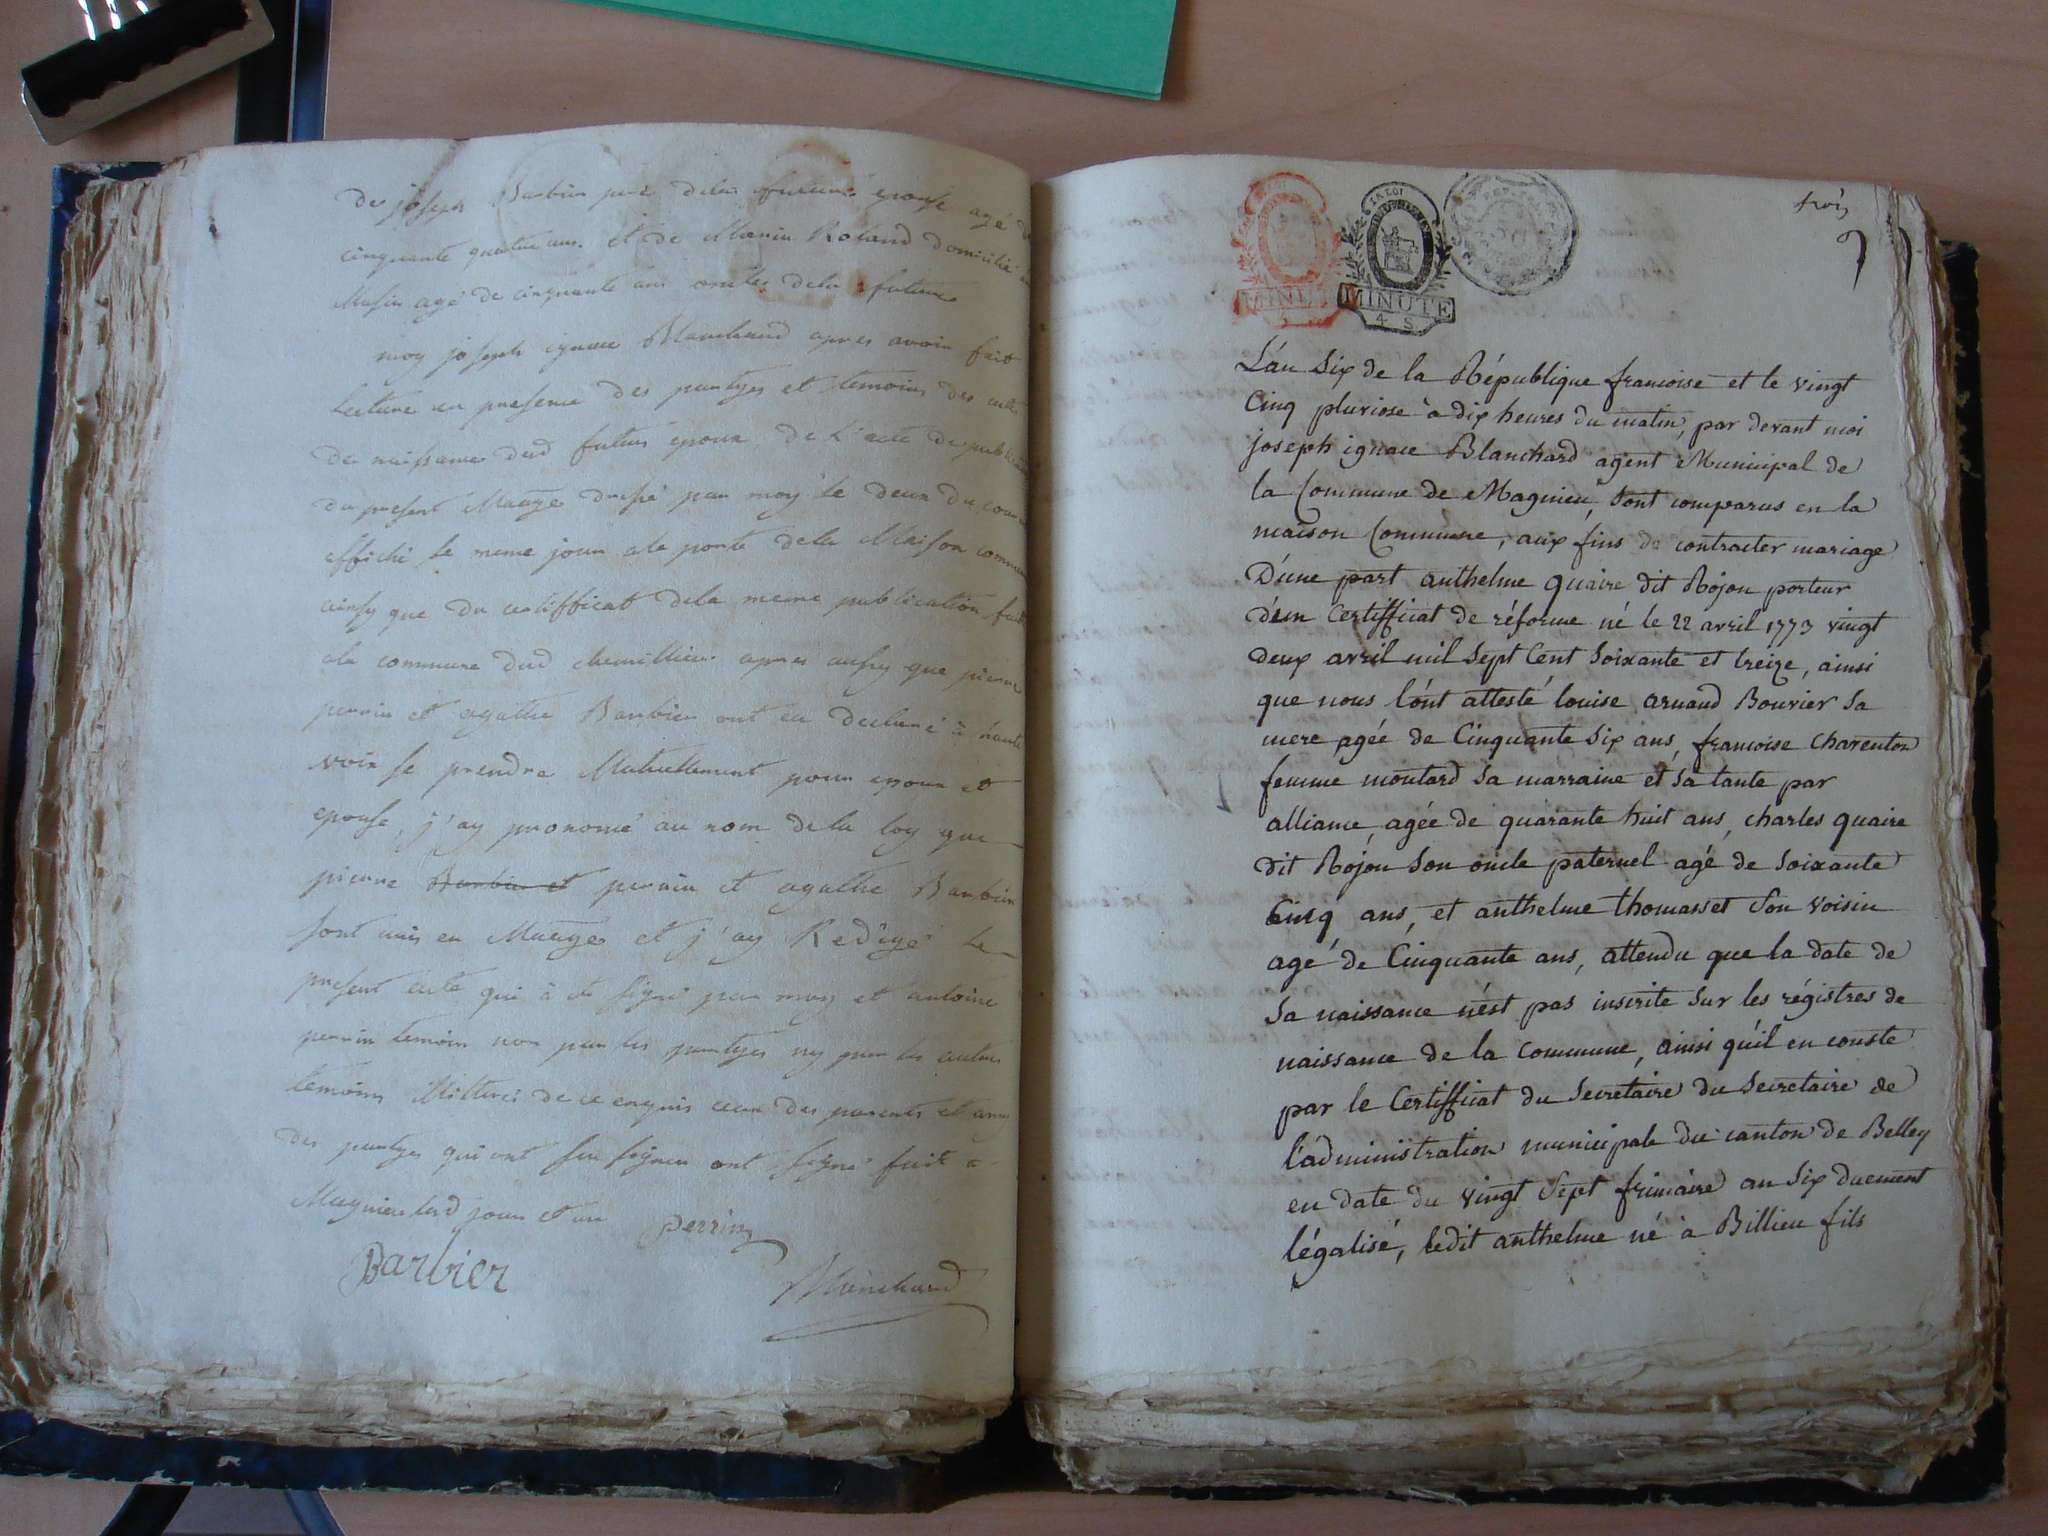 de joseph Barbier pere dela future epouse agé de
cinquante quatre ans. et de Marin Roland domicilié
agé de cinquante ans oncle dela future
moy joseph ignace Blanchard apres avoir fait
Lecture en presence des partyes et temoins des actes
de naissance dud futur epoux de L'acte de
du present Mariage dressé par moy le deux du
affiché le meme jour ala porte dela Maison
ainsy que du certifficat dela meme publication fait
ala commune dud chemillieu apres aussy que pierre
perrin et agathe Barbier ont eu declaré à haute
voix se prendre Mutuellement pour epoux et
epouse, j'ay prononcé au nom dela loy que
pierre Barbier et perrin et agathe Barbier
sont unis en Mariage et j'ay Redigé Le
present acte qui à été signé par moy et antoine
perrin temoin non par les partyes ny par les autres
temoins de ce enquis ceux des parents et amis
des partyes qui ont su signer ont signé fait a
Magnieu lesd jour et an perrin
Barbier
Blanchard
trois
LA LOI
MINUTE
MINUTE
4 S
L'an Six de la République francoise et le vingt
Cinq pluviose à dix heures du matin, par devant moi
joseph ignace Blanchard agent Municipal de
la Commune de Magnieu, sont comparus en la
maison Commune, aux fins de contracter mariage
D'une part anthelme quaire dit Rojon porteur
d'un Certifficat de réforme né le 22 avril 1773 vingt
deux avril mil sept cent soixante et treize, ainsi
que nous l'ónt attesté louise arnaud Bouvier sa
mere agée de Cinquante six ans, francoise charenton
femme moutard sa marraine et sa tante par
alliance agée de quarante huit ans, charles quaire
dit Rojon son oncle paternel agé de soixante
Cinq ans, et anthelme thomasset son voisin
agé de Cinquante ans, attendu que la date de
sa naissance n'est pas inscrite sur les régistres de
naissance de la commune, ainsi qu'il en conste
par le Certifficat du Secretaire du Secretaire de
l'administration municipale du canton de Belley
en date du vingt sept frimaire an Six duement
légalisé, ledit anthelme né à Billieu fils